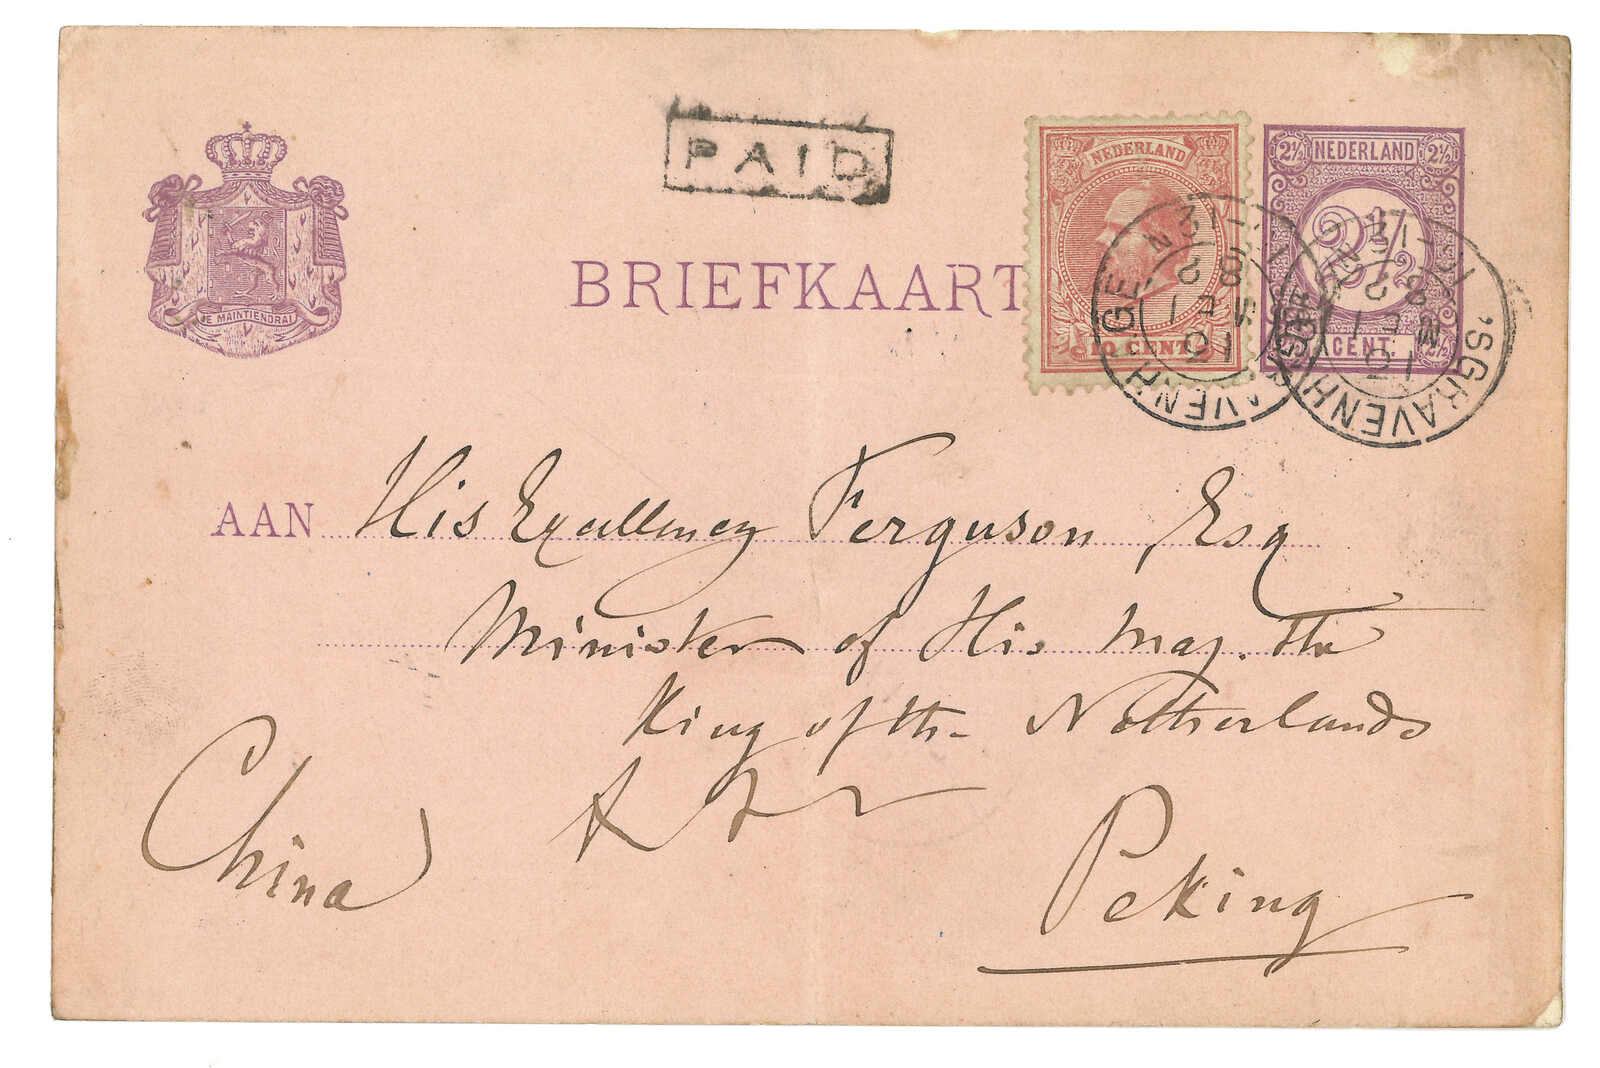 PAID
NEDERLAND
10 CENT
2½ NEDERLAND 2½
2½
CENT 2½
'SGRAVENHAGE
'SGRAVENHAGE
JE MAINTIENDRAI
BRIEFKAART
AAN His Excellency Ferguson, Esq
Minister of His Maj. the
King of the Netherlands
China
Peking